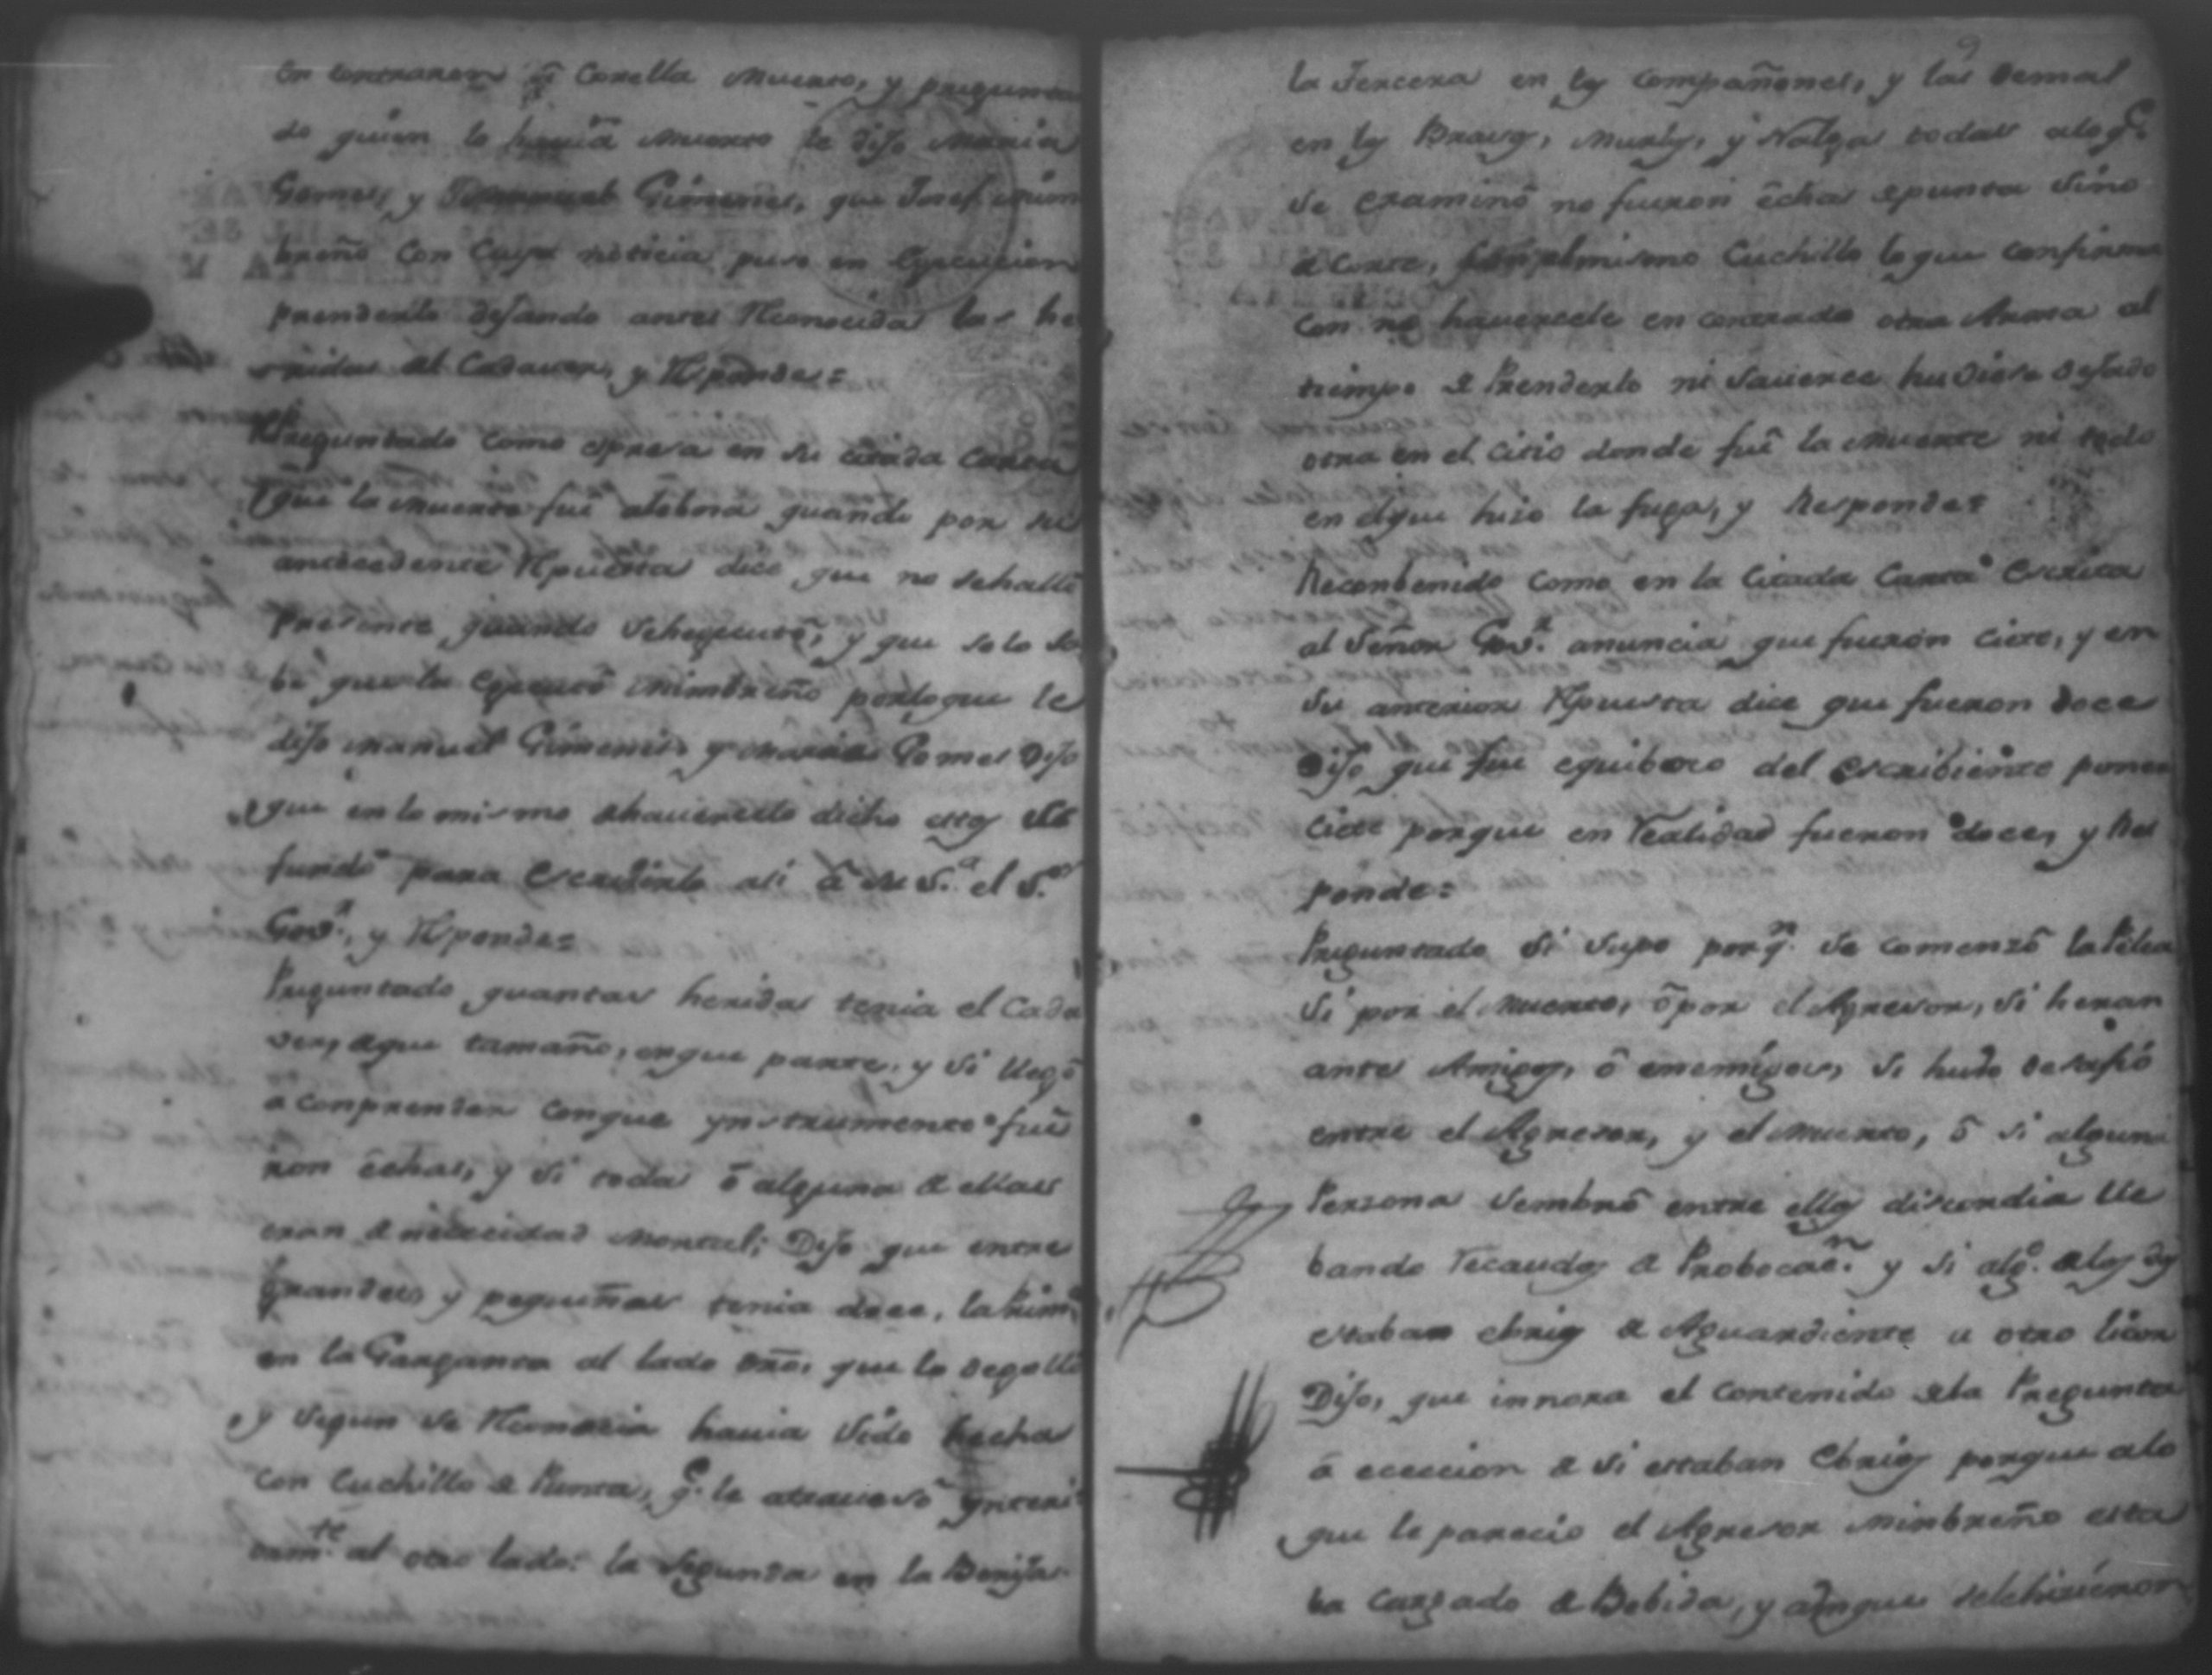 en contraron â Corella Muerto, y pregunta
do quien lo havia Muerto le dijo Maria
Gomes, y Manuel Gimenes, que Josef Mim
breño con cuya noticia puso en Egecucion
prenderlo dejando antes Reconocidas las he
ridas al Cadaver, y Rponde=
Preguntado como espresa en su citada Carta
que la Muerte fué alebosa quando por su
antecedente Rpuesta dice que no sehalló
presente quando sehegecutó, y que solo sa
be que la Egecutó Mimbreño porloque le
dijo Manuel Gimenes y Maria Gomes Dijo
que en lo mismo ahaverselo dicho ellos se
fundó para escrivirlo asi â su S.ª el S.or
Gov.r, y Rponde=
Preguntado quantas heridas tenia el Cada
ver, aque tamaño, enque parte, y si llegó
a conprender conque ynstrumento fue
ron êchas, y si todas ô alguna de ellas
eran de nececidad Mortal; Dijo que entre
grandes, y pequeñas tenia doce, la Prim.ª
en la Garganta al lado dro, que lo degolló
y segun se Reconocia havia sido hecha
con Cuchillo de Punta, q.e le atravesó ynteri
orm.te al otro lado: la segunda en la Berija
9
la Tercera en los Compañones, y las demas
en los Brasos, Muslos, y Nalga todas alo q.e
se examinó no fueron êchas de punta sino
de Corte, con elmismo Cuchillo lo que confirma
con no haversele en contrado otra Arma al
tiempo de Prenderlo ni saverce hudiese dejado
otra en el Citio donde fué la Muerte ni todo
en elque hiso la fuga, y Responde=
Reconbenido como en la Citada Carta Escrita
al Señor Gov.r anuncia que fueron Ciete, y en
su anterior Rpuesta dice que fueron Doce
Dijo que fue equiboco del Escribiente poner
Ciete porque en Realidad fueron doce, y Res
ponde=
Preguntado si supo por q.n se comenzó la Pelea
si por el Muerto, ô por el Agresor, si heran
antes Amigos, ô enemigos, si hubo desafió
entre el Agresor, y el Muerto, ô si alguna
Persona sembró entre ellos discordia lle
bando recaudos de Probocac.n y si alg.o delos dos
estaban ebrios de Aguardiente u otro licor
Dijo, que innora el contenido dela Pregunta
â ececcion de si estaban Ebrios porque alo
que le parecio el Agresor Minbreño esta
ba Cargado de Bebida, y aunque selehicieron